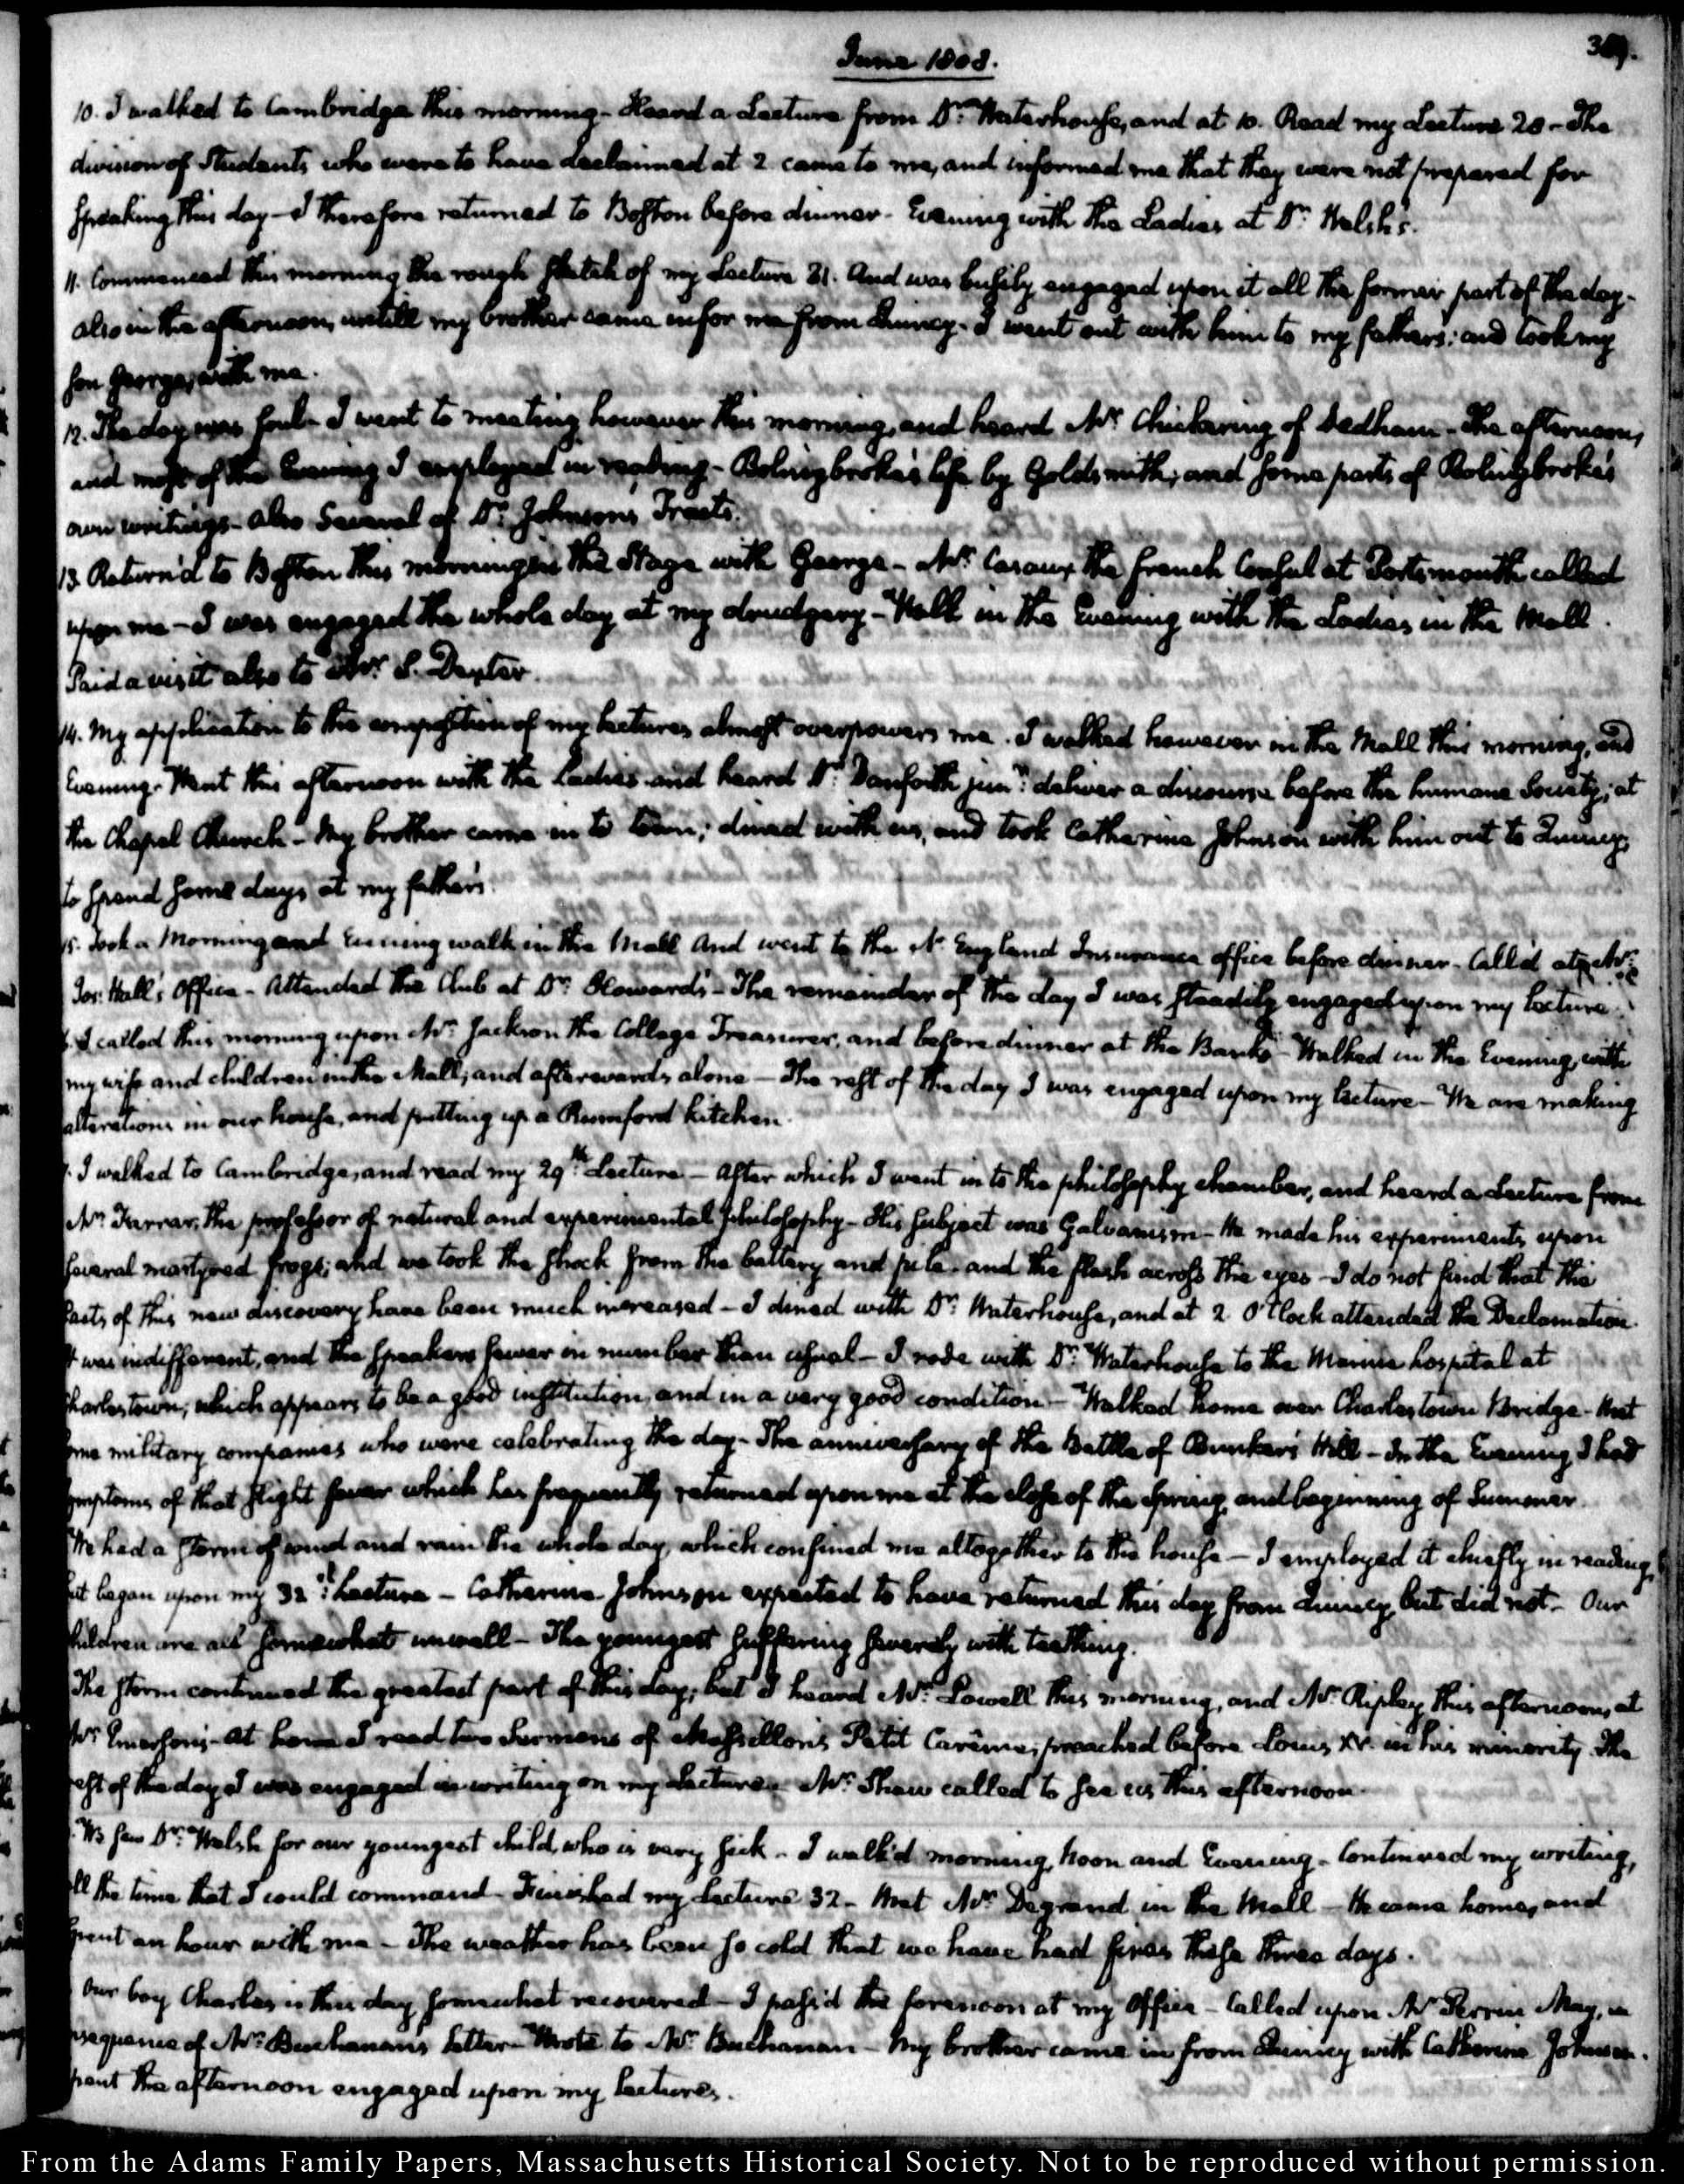 June 1808.
10. I walked to Cambridge this morning - Heard a Lecture from Dr. Waterhouse, and at 10. Read my Lecture 28 - The
division of Students who were to have declaimed at 2 came to me, and informed me that they were not prepared for
speaking this day - I therefore returned to Boston before dinner - Evening with the Ladies at Dr. Welsh's.
11. Commenced this morning the rough sketch of my Lecture 31. And was busily engaged upon it all the former part of the day -
also in the afternoon, untill my brother came in for me from Quincy - I went out with him to my father's: and took my
son George, with me.
12. The day was foul - I went to meeting however this morning, and heard Mr. Chickering of Dedham - The afternoon,
and most of the Evening I employed in reading - Bolingbroke's life by Goldsmith; and some parts of Bolingbroke's
own writings - also several of Dr. Johnson's Tracts.
13. Return'd to Boston this morning in the Stage with George - Mr. Cazaux the French Consul at Portsmouth called
upon me - I was engaged the whole day at my drudgery - Walk in the Evening with the Ladies in the Mall.
Paid a visit also to Mr. S. Dexter.
14. My application to the composition of my Lectures almost overpowers me. I walked however in the Mall this morning, and
Evening - Went this afternoon with the Ladies and heard Dr. Danforth junr. deliver a discourse before the humane Society; at
the Chapel Church - My brother came in to town; dined with us, and took Catherine Johnson with him out to Quincy,
to spend some days at my father's.
15. Took a Morning and Evening walk in the Mall And went to the N. England Insurance office before dinner - Called at Mr.
Jos: Hall's Office - Attended the Club at Dr. Howard's - The remainder of the day I was steadily engaged upon my Lecture.
I called this morning upon Mr. Jackson the College Treasurer, and before dinner at the Banks - Walked in the Evening, with
my wife and children in the Mall; and afterwards alone - The rest of the day I was engaged upon my Lecture - We are making
alterations in our house, and putting up a Rumford kitchen.
I walked to Cambridge, and read my 29th. Lecture - After which I went in to the philosophy chamber, and heard a Lecture from
Mr. Farrar, the professor of natural and experimental philosophy - His subject was Galvanism - He made his experiments upon
several martyred frogs; and we took the shock from the battery and pile - and the flash across the eyes - I do not find that the
facts of this new discovery have been much increased - I dined with Dr. Waterhouse, and at 2 O'Clock attended the Declamation.
It was indifferent, and the speakers fewer in number than usual - I rode with Dr. Waterhouse to the Marine hospital at
Charlestown; which appears to be a good institution, and in a very good condition - Walked home over Charlestown Bridge - Met
some military companies who were celebrating the day - The anniversary of the Battle of Bunker's Hill - In the Evening I had
symptoms of that slight fever which has frequently returned upon me at the close of the Spring, and beginning of Summer.
We had a storm of wind and rain the whole day, which confined me altogether to the house - I employed it chiefly in reading,
but began upon my 32d. Lecture - Catherine Johnson expected to have returned this day from Quincy, but did not - Our
children are all somewhat unwell - The youngest suffering severely with teething.
The storm continued the greatest part of this day; but I heard Mr. Lowell this morning, and Mr. Ripley this afternoon, at
Mr. Emerson's - At home I read two Sermons of Massillon's Petit Carême; preached before Louis XV. in his minority. The
rest of the day I was engaged in writing on my Lecture. Mr. Shaw called to see us this afternoon.
We saw Dr. Welsh for our youngest child, who is very sick - I walk'd morning, Noon and Evening - Continued my writing,
all the time that I could command - Finished my Lecture 32 - Met Mr. Degrand in the Mall - He came home, and
spent an hour with me - The weather has been so cold that we have had fires these three days.
Our boy Charles is this day somewhat recovered - I pass'd the forenoon at my Office - Called upon Mr. Perrin May, in
consequence of Mr. Buchanan's letter - Wrote to Mr. Buchanan - My brother came in from Quincy with Catherine Johnson.
Spent the afternoon engaged upon my Lectures.
From the Adams Family Papers, Massachusetts Historical Society. Not to be reproduced without permission.